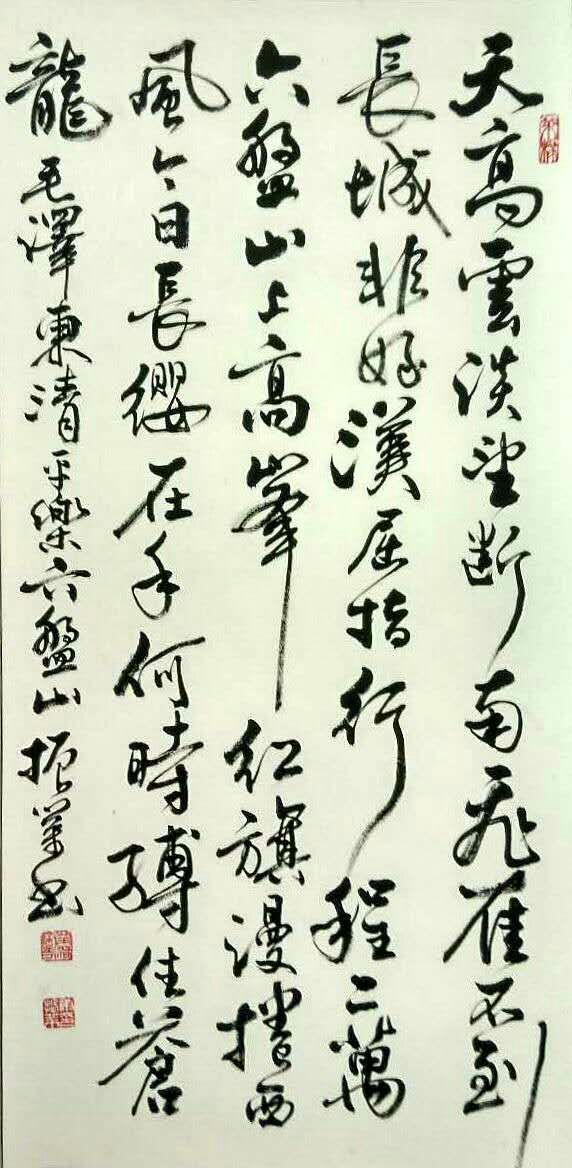 天高雲淡望斷南飛雁不到
長城非好漢屈指行程二萬
六盤山上高峯紅旗漫捲西
風今日長纓在手何時縛住蒼
龍 毛澤東清平樂六盤山振書